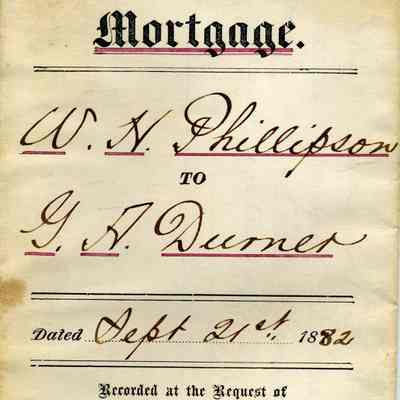 Mortgage.
W. H. Phillipson
TO
G. H. Durner
Dated Sept 21st. 1882
Recorded at the Request of